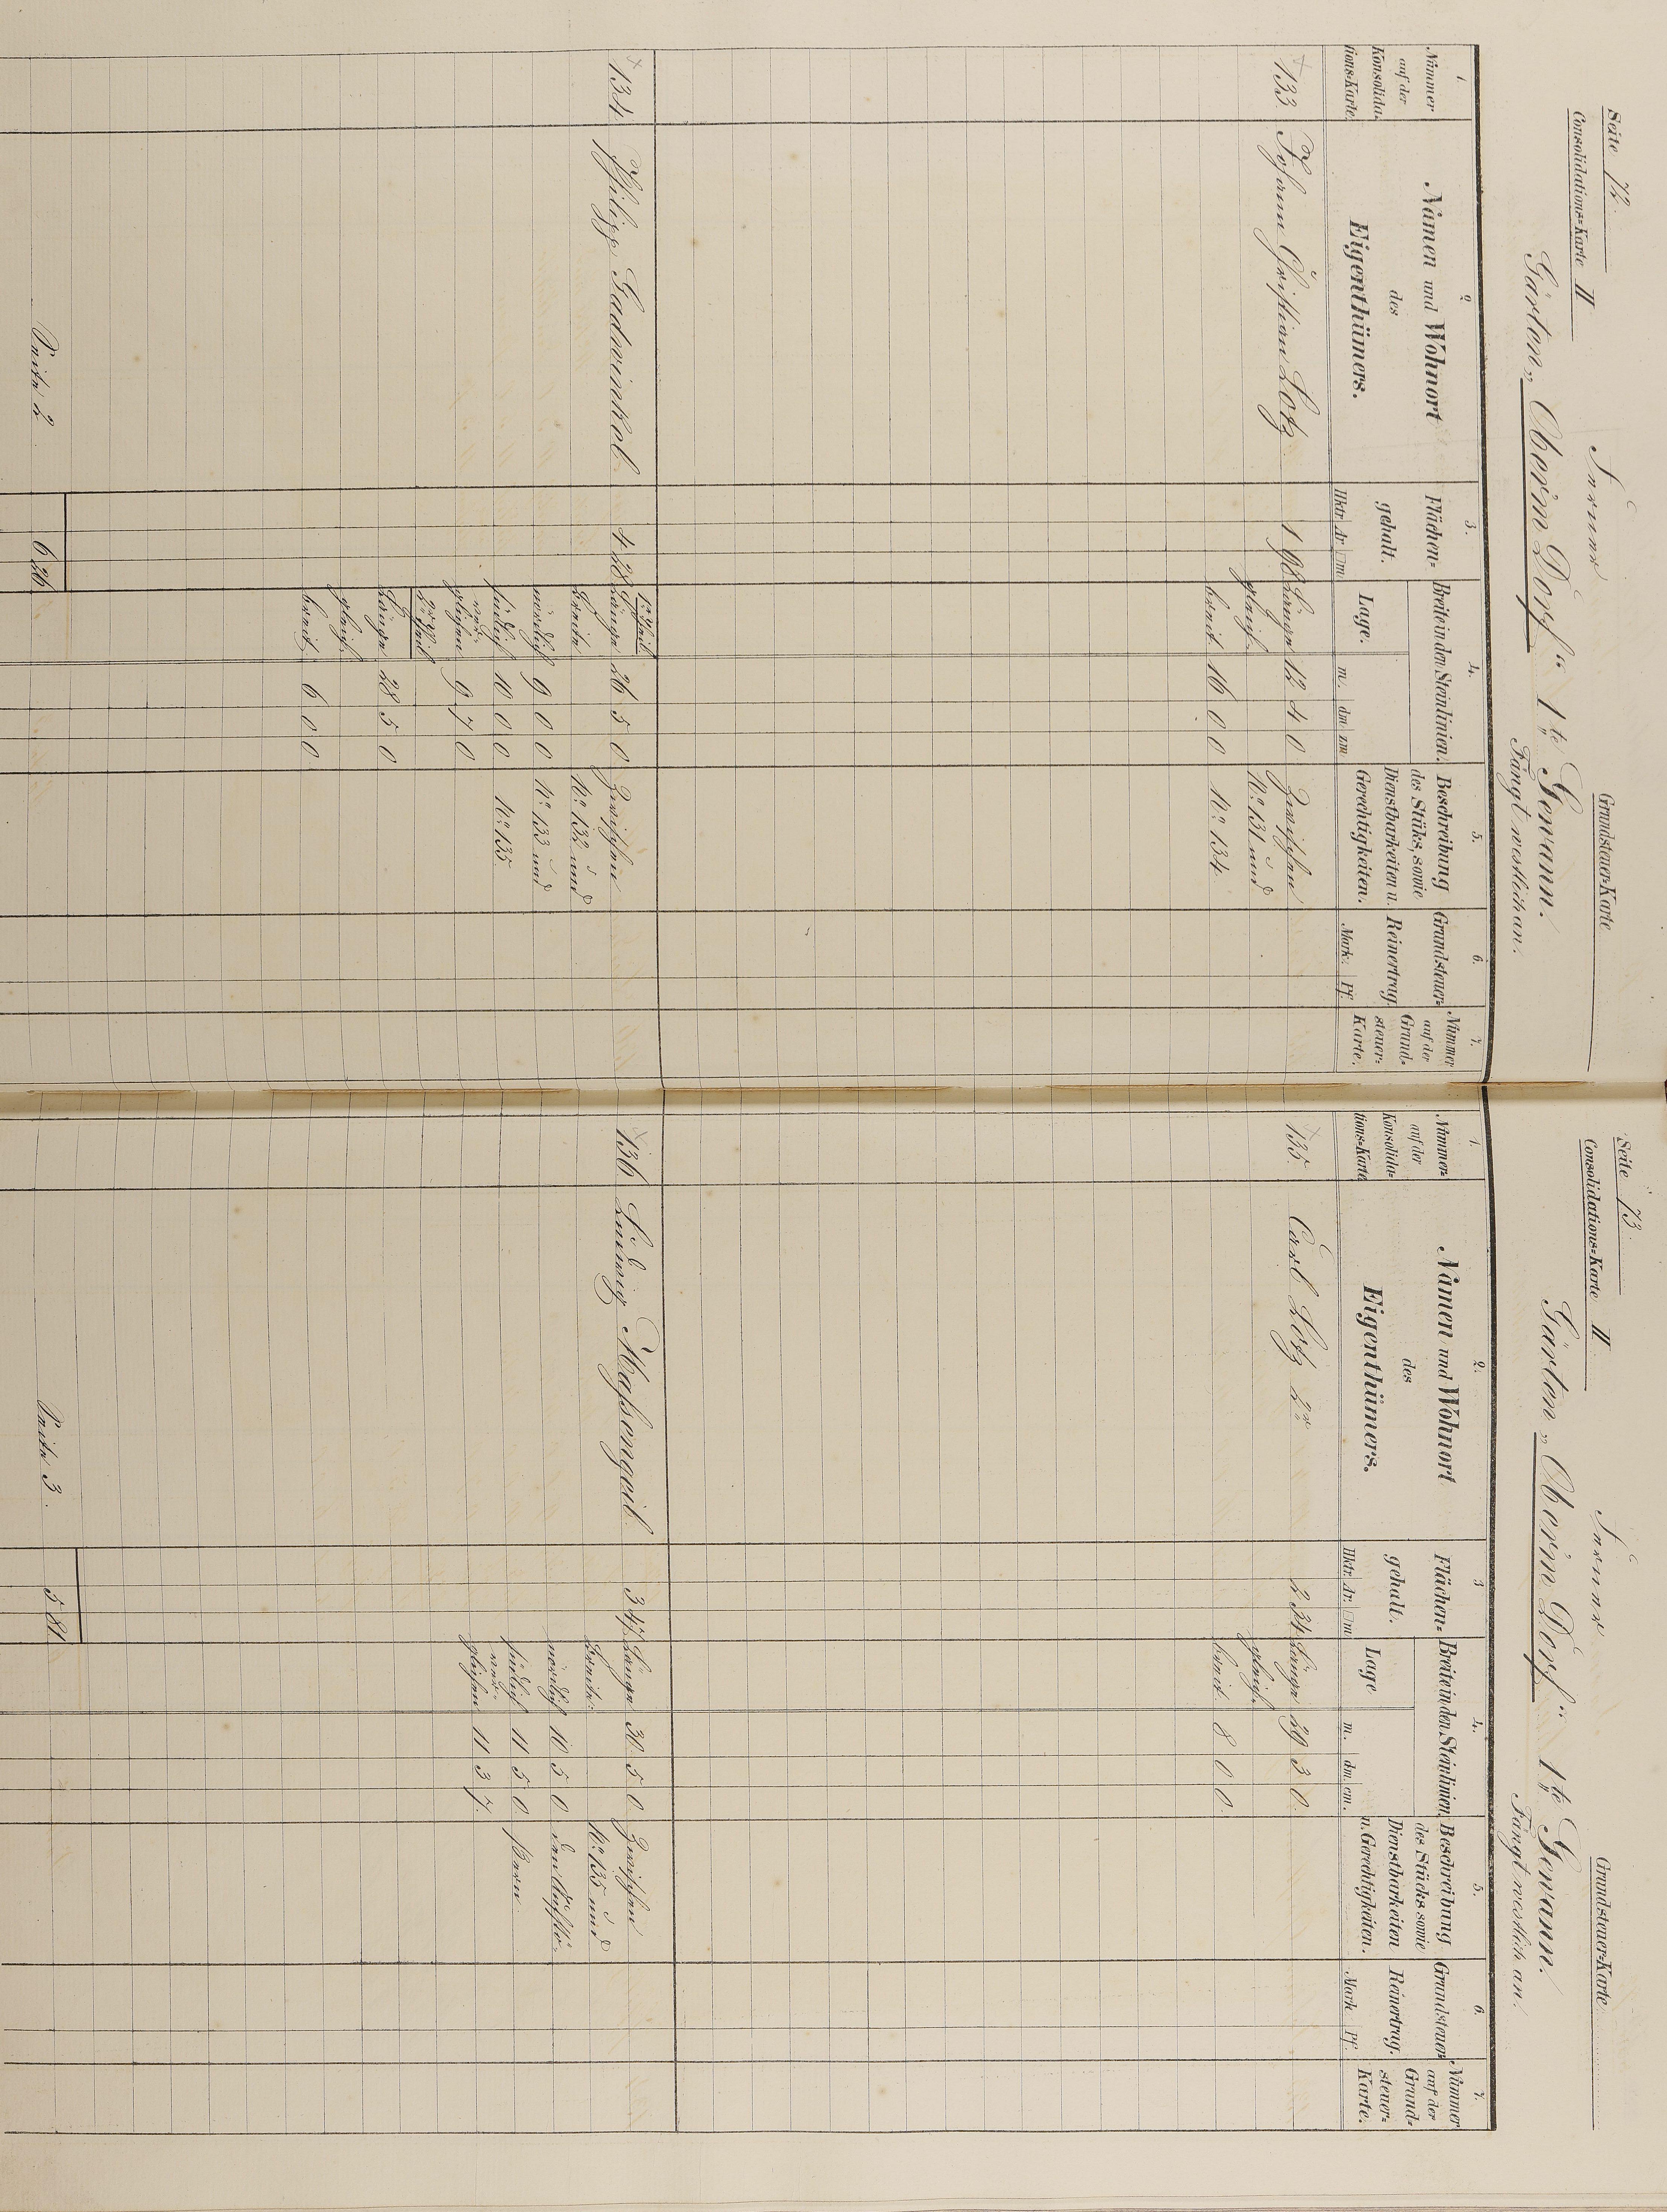 Seite 72.
Consolidations=Karte II
Grundsteuer=Karte
Gärten „Ober'm Dorf“ 1te Gewann.
Fängt westlich an.
1. 2. 3. 4. 5. 6. 7.
Nummer auf der Konsolidations=Karte
Namen und Wohnort des Eigenthümers.
Flächen=gehalt. Hktr. Ar. □m
Breite in den Steinlinien. Lage. m. dm. zm
Beschreibung des Stüks, sowie Dienstbarkeiten u. Gerechtigkeiten.
Grundsteuer=Reinertrag. Mark. Pf.
Nummer auf der Grund=steuer=Karte.
133. Johann Christian Lotz 1 98 Länge 12 4 0 Zwischen
gleich No 131 und
breit 16 0 0 No 134.
1r Theil
134. Philipp Gadwinkel. 4 28 Länge 26 5 0 Zwischen
Breite No 132 und
nördlich 9 0 0 No 133 und
südlich 10 0 0 No 135
ver-
glichen 9 7 0
2r Theil
Länge 28 5 0
gleich
breit 6 0 0
Seite 2 6 26
Seite 73.
Consolidations=Karte II.
Grundsteuer=Karte
Gärten „Ober'm Dorf“ 1te Gewann.
Fängt westlich an.
1. 2. 3 4. 5. 6. 7.
Nummer auf der Konsolida=tions=Karte
Namen und Wohnort des Eigenthümers.
Flächen=gehalt. Hktr. Ar. □m
Breite in den Steinlinien. Lage m. dm. cm.
Beschreibung des Stücks sowie Dienstbarkeiten u. Gerechtigkeiten.
Grundsteuer=Reinertrag. Mark Pf.
Nummer auf der Grund=steuer=Karte.
135. Carl Lotz 2r 2 34 Länge 29 3 0
gleich
breit 8 0 0
136 Ludwig Maßengeil. 3 47 Länge 30 5 0 Zwischen
Breite: No 135 und
nördlich 10 5 0
südlich 11 5 0
ver-
glichen 11 3 7.
Seite 3. 5 81